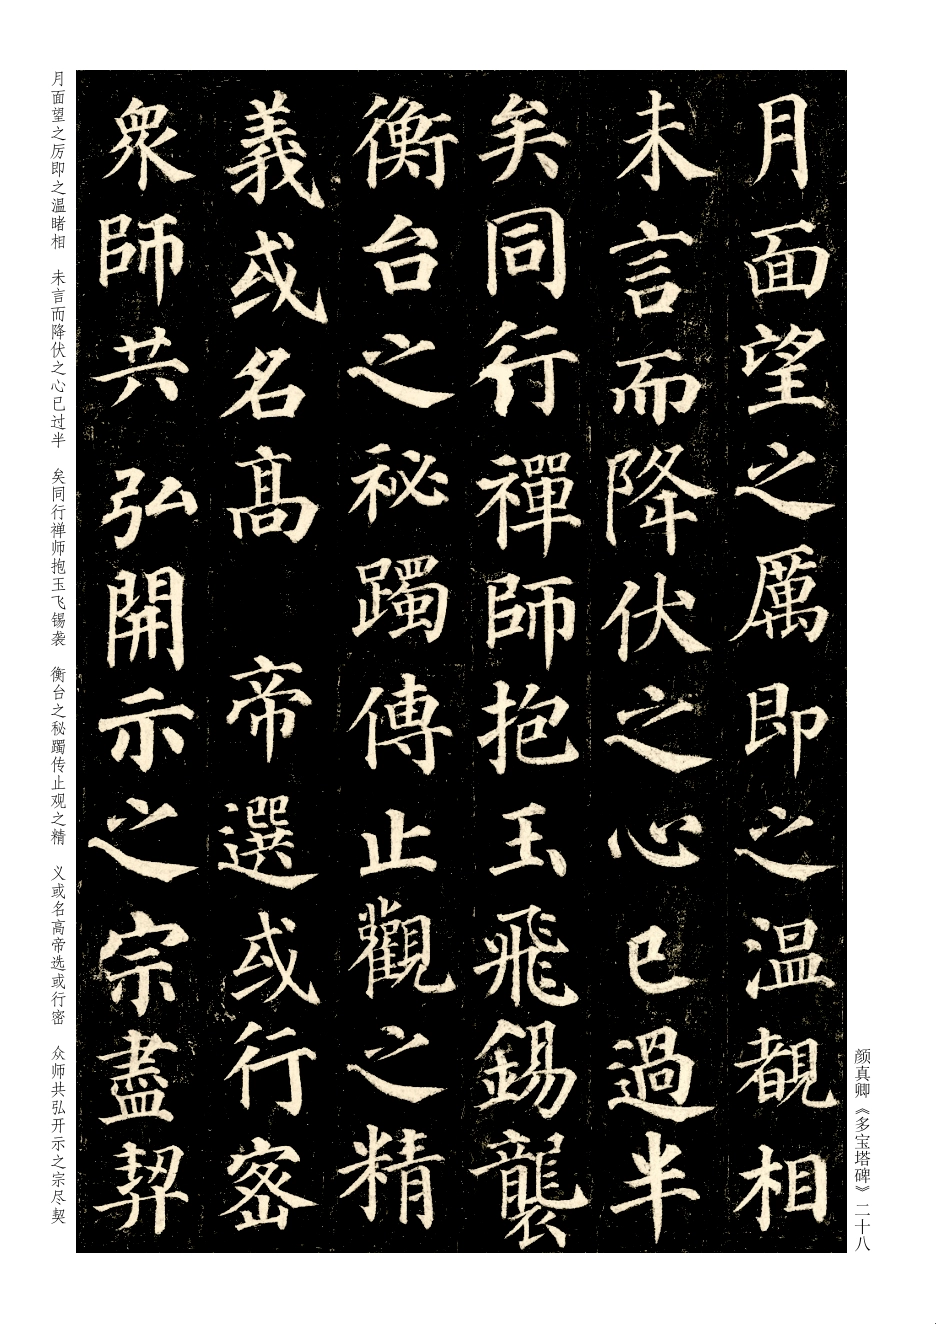 月面望之厲即之温覩相
未言而降伏之心已過半
矣同行禪師抱玉飛錫襲
衡台之秘躅傳止觀之精
義或名高 帝選或行密
衆師共弘開示之宗盡契
月面望之厉即之温睹相 未言而降伏之心已过半 矣同行禅师抱玉飞锡袭 衡台之秘躅传止观之精 义或名高帝选或行密 众师共弘开示之宗尽契
颜真卿《多宝塔碑》二十八